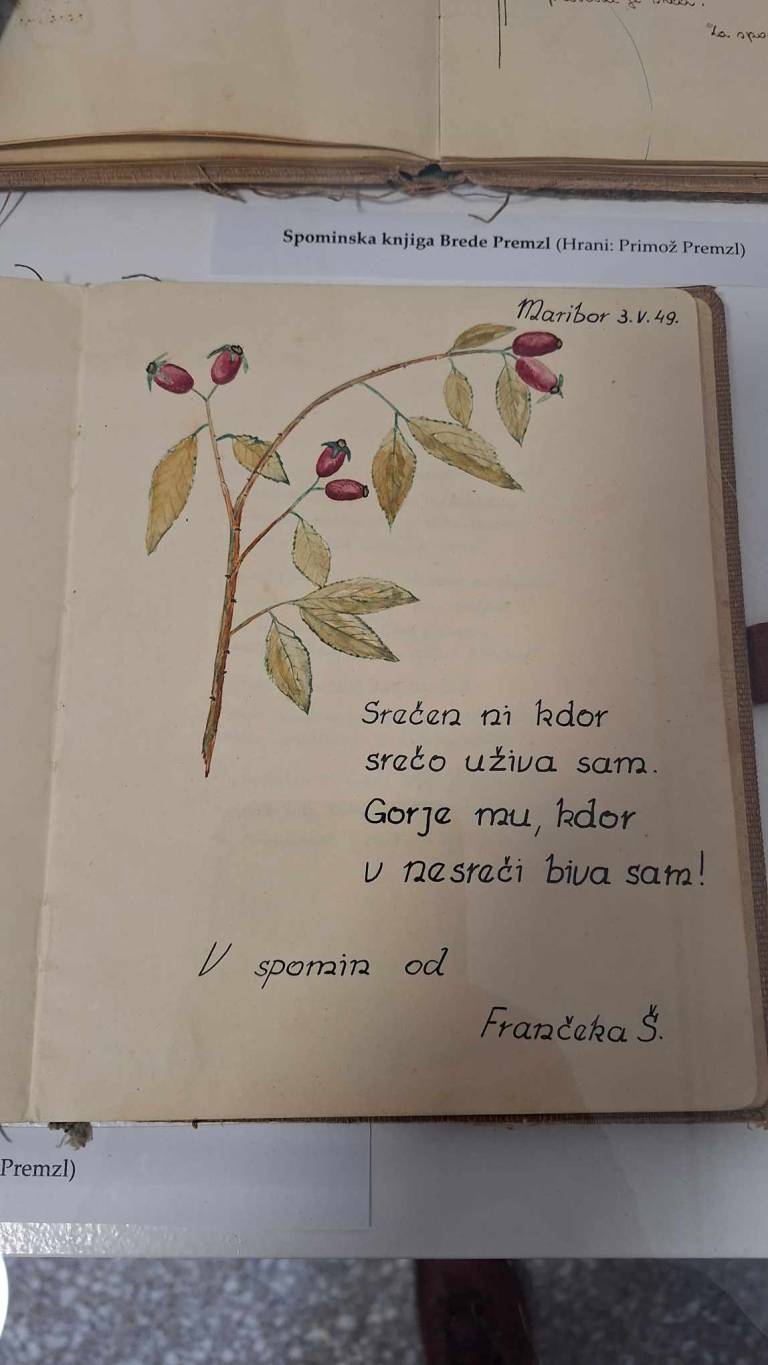 Za spo
Spominska knjiga Brede Premzl (Hrani: Primož Premzl)
Maribor 3. V. 49.
Srečen ni kdor
srečo uživa sam.
Gorje mu, kdor
v nesreči biva sam!
V spomin od
Frančeka Š.
Premzl)